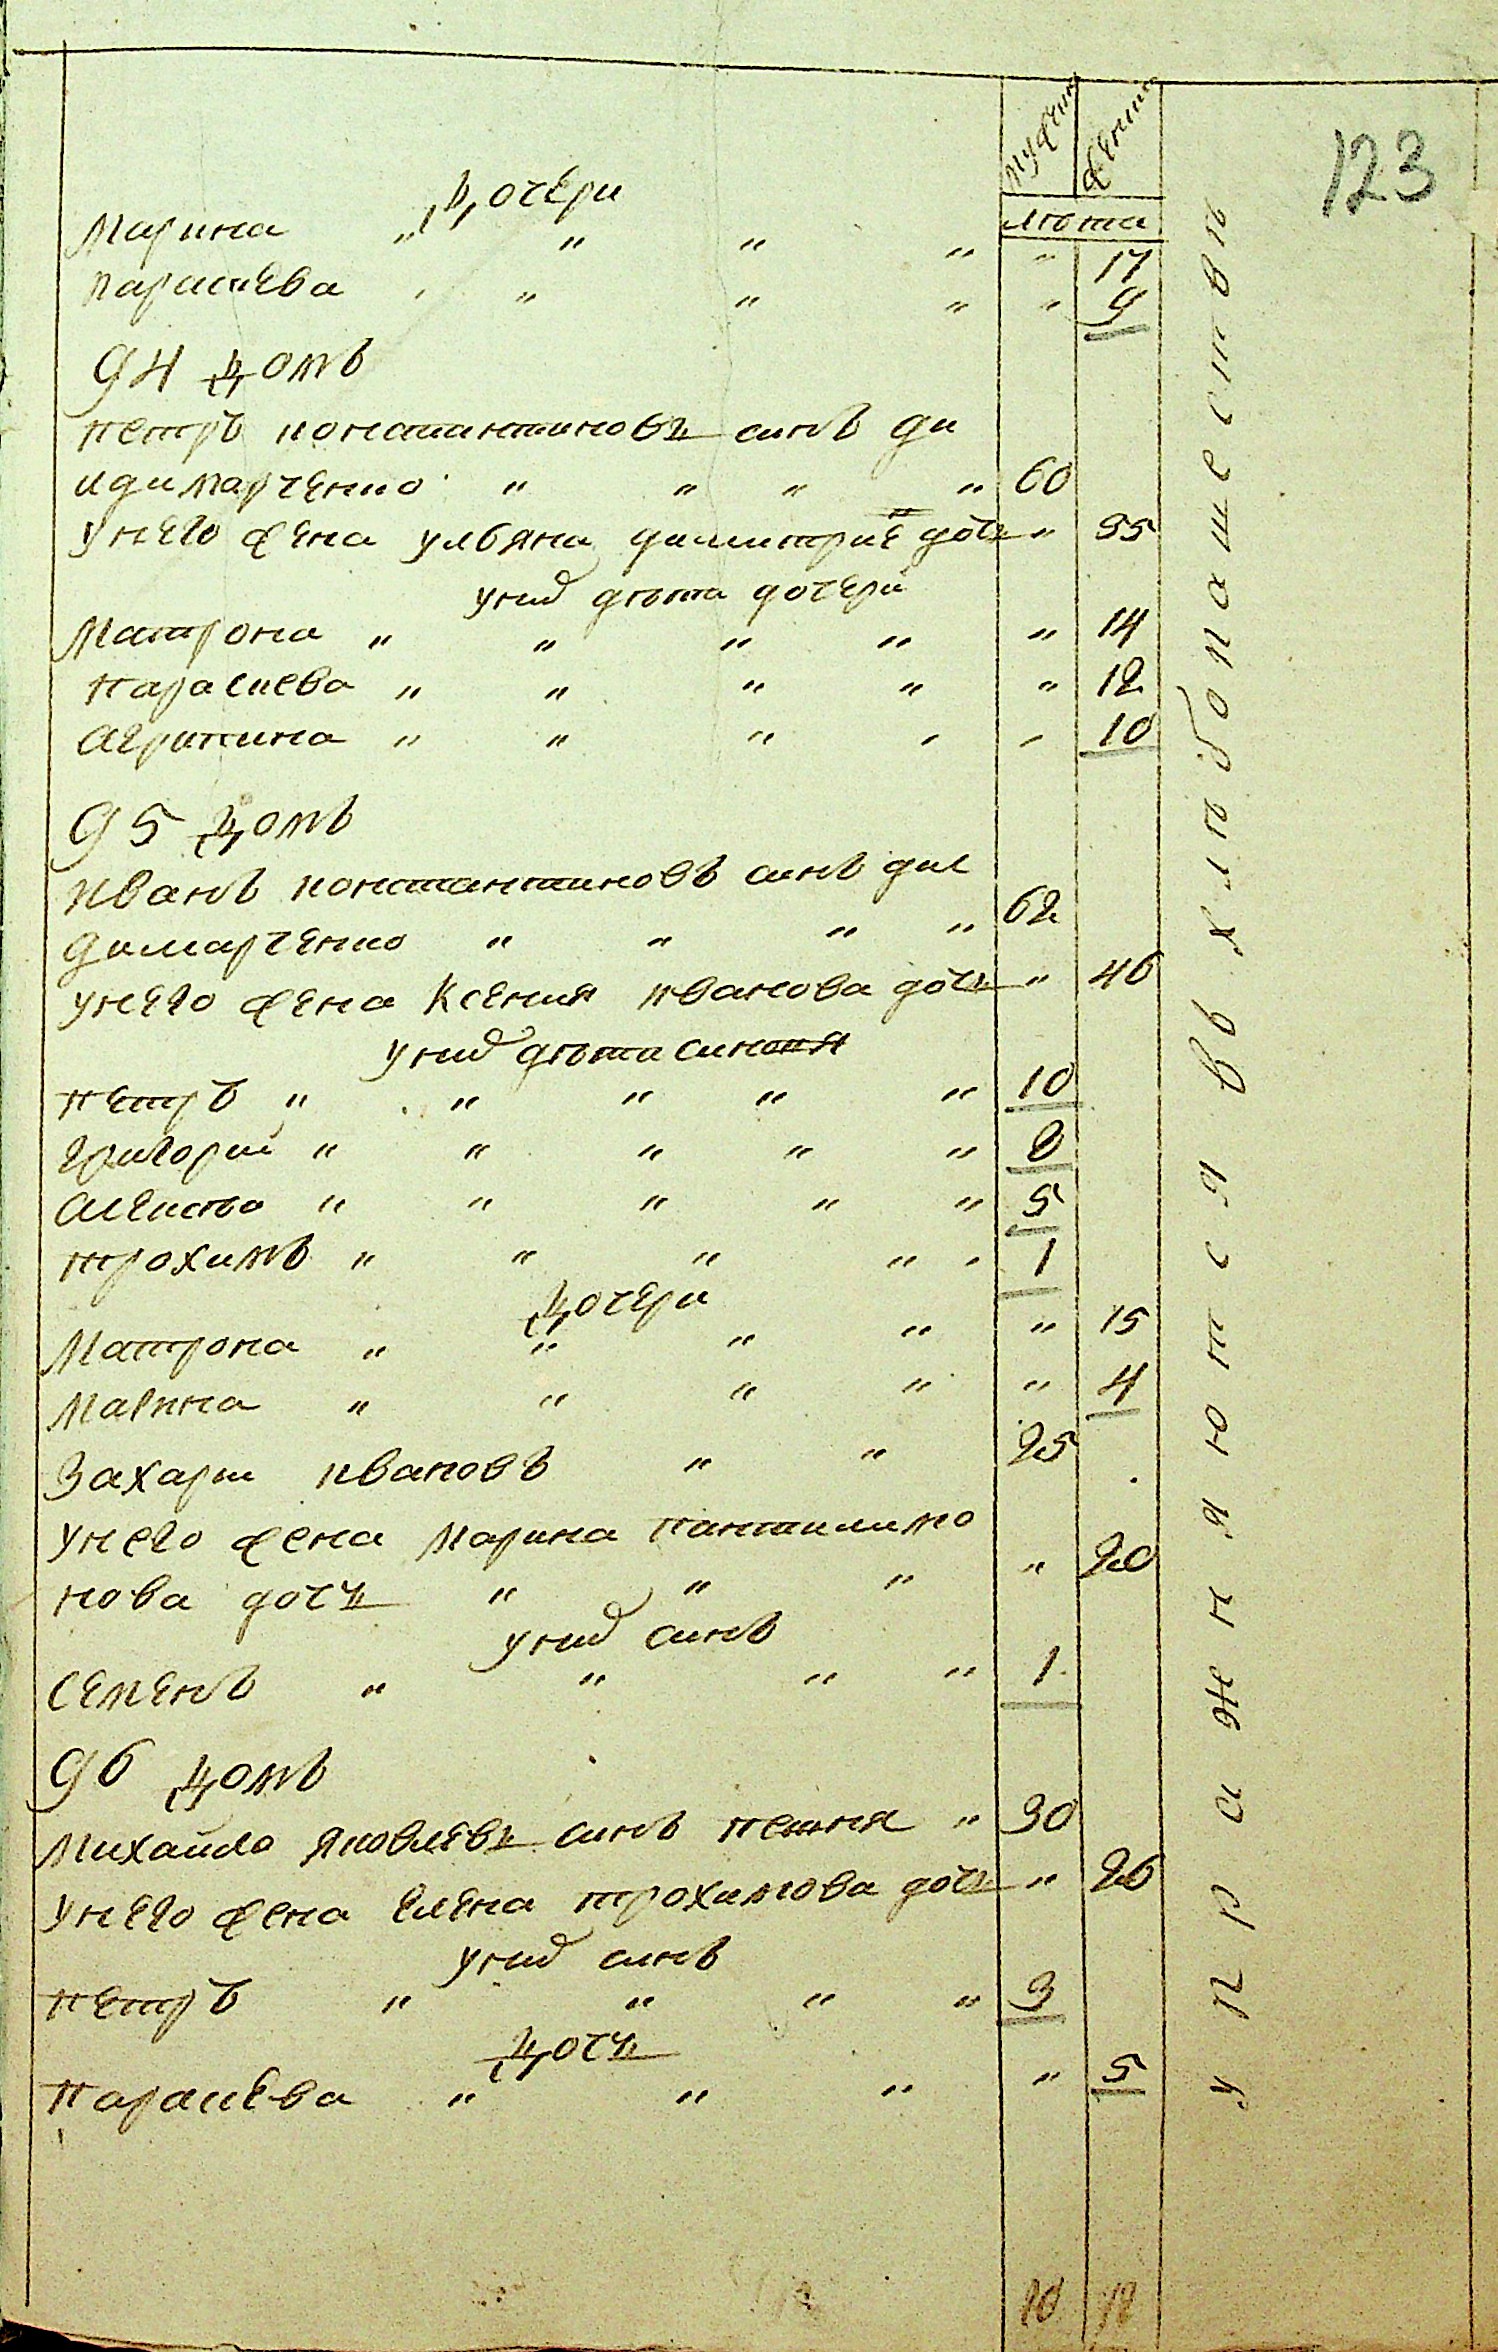 123
мужеск женск
лѣта
Дочери
Марина " " " " " 17
параскева " " " " 9
94 домъ
петръ константиновъ синъ ди
кдимарченко " " " " 60
унего жена ульяна димитрие дочъ " 55
унид дѣти дочери
Матрона " " " " " 14
параскева " " " " " 12
агрипина " " " " " 10
95 домъ
иванъ константиновъ синъ дик
димарченко " " " " 62
унего жена Ксения иванова дочъ " 46
унид дѣти синовя
петръ " " " " " 10
григорий " " " " " 8
алексѣй " " " " " 5
трохимъ " " " " " 1
дочери
Матрона " " " " " 15
Марина " " " " " 4
Захарий ивановъ " " 25
унего жена Марина пантилимо
нова дочъ " " " " 20
унид синъ
семенъ " " " " 1
96 домъ
михайло яковлевъ синъ петня " 30
унего жена елена трохимова дочъ " 26
унид синъ
петръ " " " " 3
дочъ
параскева " " " " 5
упражняются въ хлѣбопашествѣ